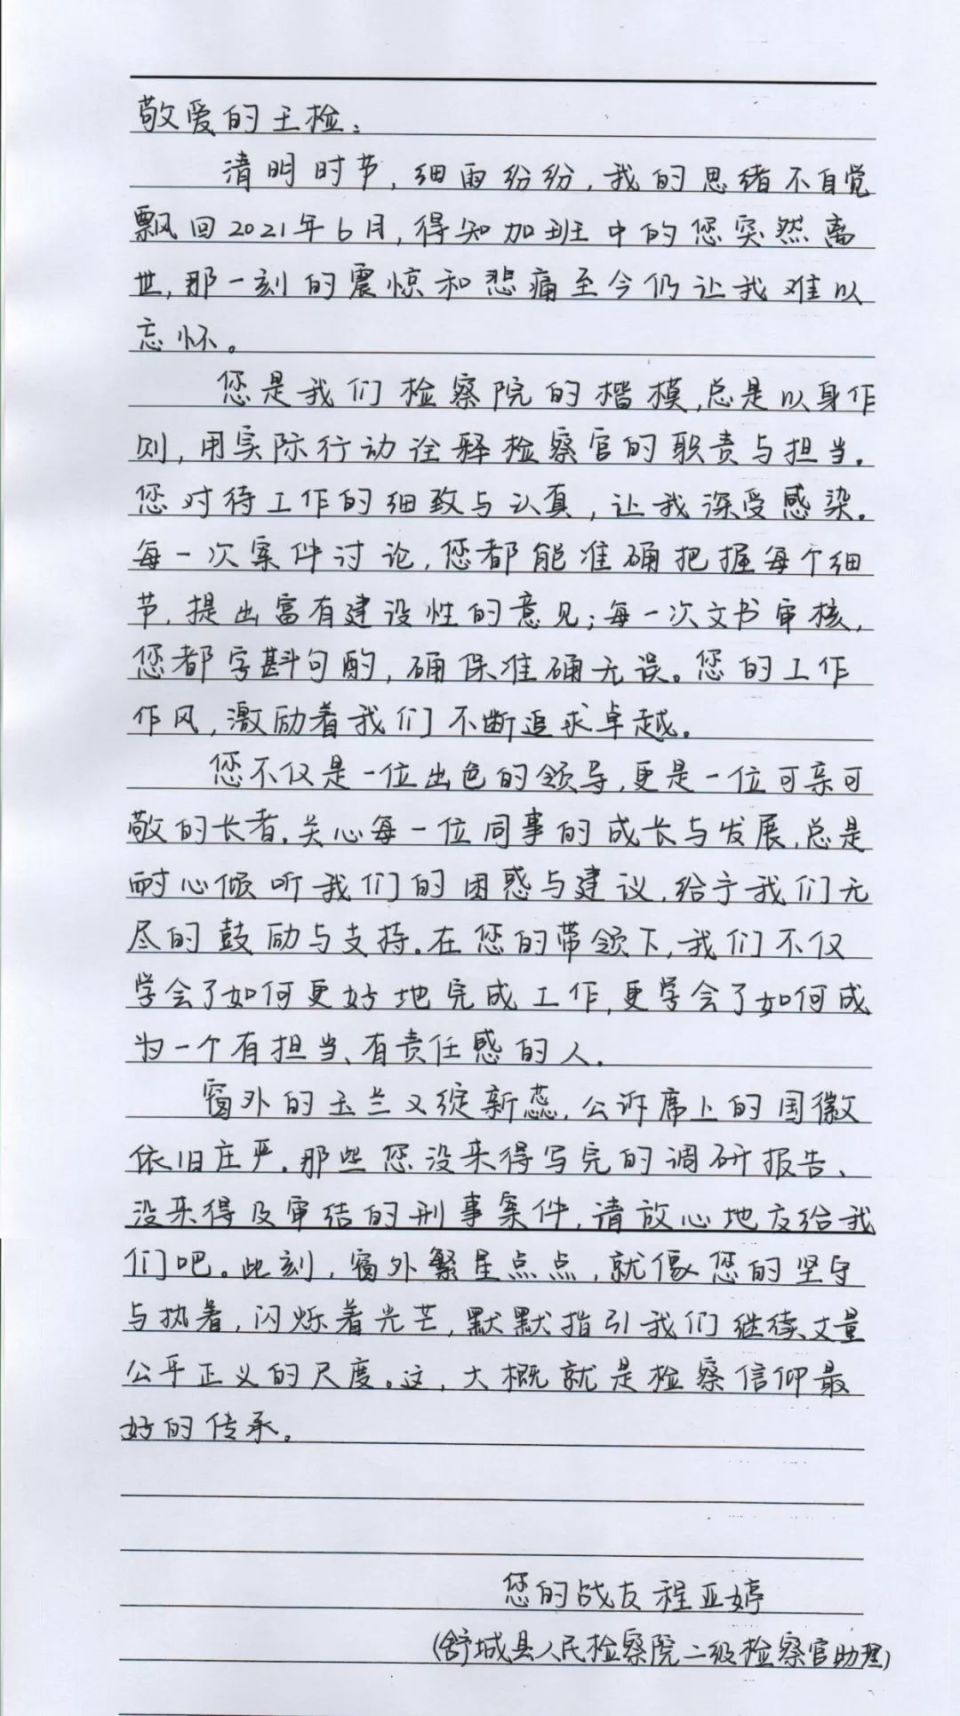 敬爱的王检：
清明时节，细雨纷纷，我的思绪不自觉
飘回2021年6月，得知加班中的您突然离
世，那一刻的震惊和悲痛至今仍让我难以
忘怀。
您是我们检察院的楷模，总是以身作
则，用实际行动诠释检察官的职责与担当。
您对待工作的细致与认真，让我深受感染。
每一次案件讨论，您都能准确把握每个细
节，提出富有建设性的意见；每一次文书审核，
您都字斟句酌，确保准确无误。您的工作
作风，激励着我们不断追求卓越。
您不仅是一位出色的领导，更是一位可亲可
敬的长者。关心每一位同事的成长与发展，总是
耐心倾听我们的困惑与建议，给予我们无
尽的鼓励与支持。在您的带领下，我们不仅
学会了如何更好地完成工作，更学会了如何成
为一个有担当、有责任感的人。
窗外的玉兰又绽新蕊，公诉席上的国徽
依旧庄严。那些您没来得写完的调研报告、
没来得及审结的刑事案件，请放心地交给我
们吧。此刻，窗外繁星点点，就像您的坚守
与执着，闪烁着光芒，默默指引我们继续丈量
公平正义的尺度。这，大概就是检察信仰最
好的传承。
您的战友程亚婷
（舒城县人民检察院二级检察官助理）